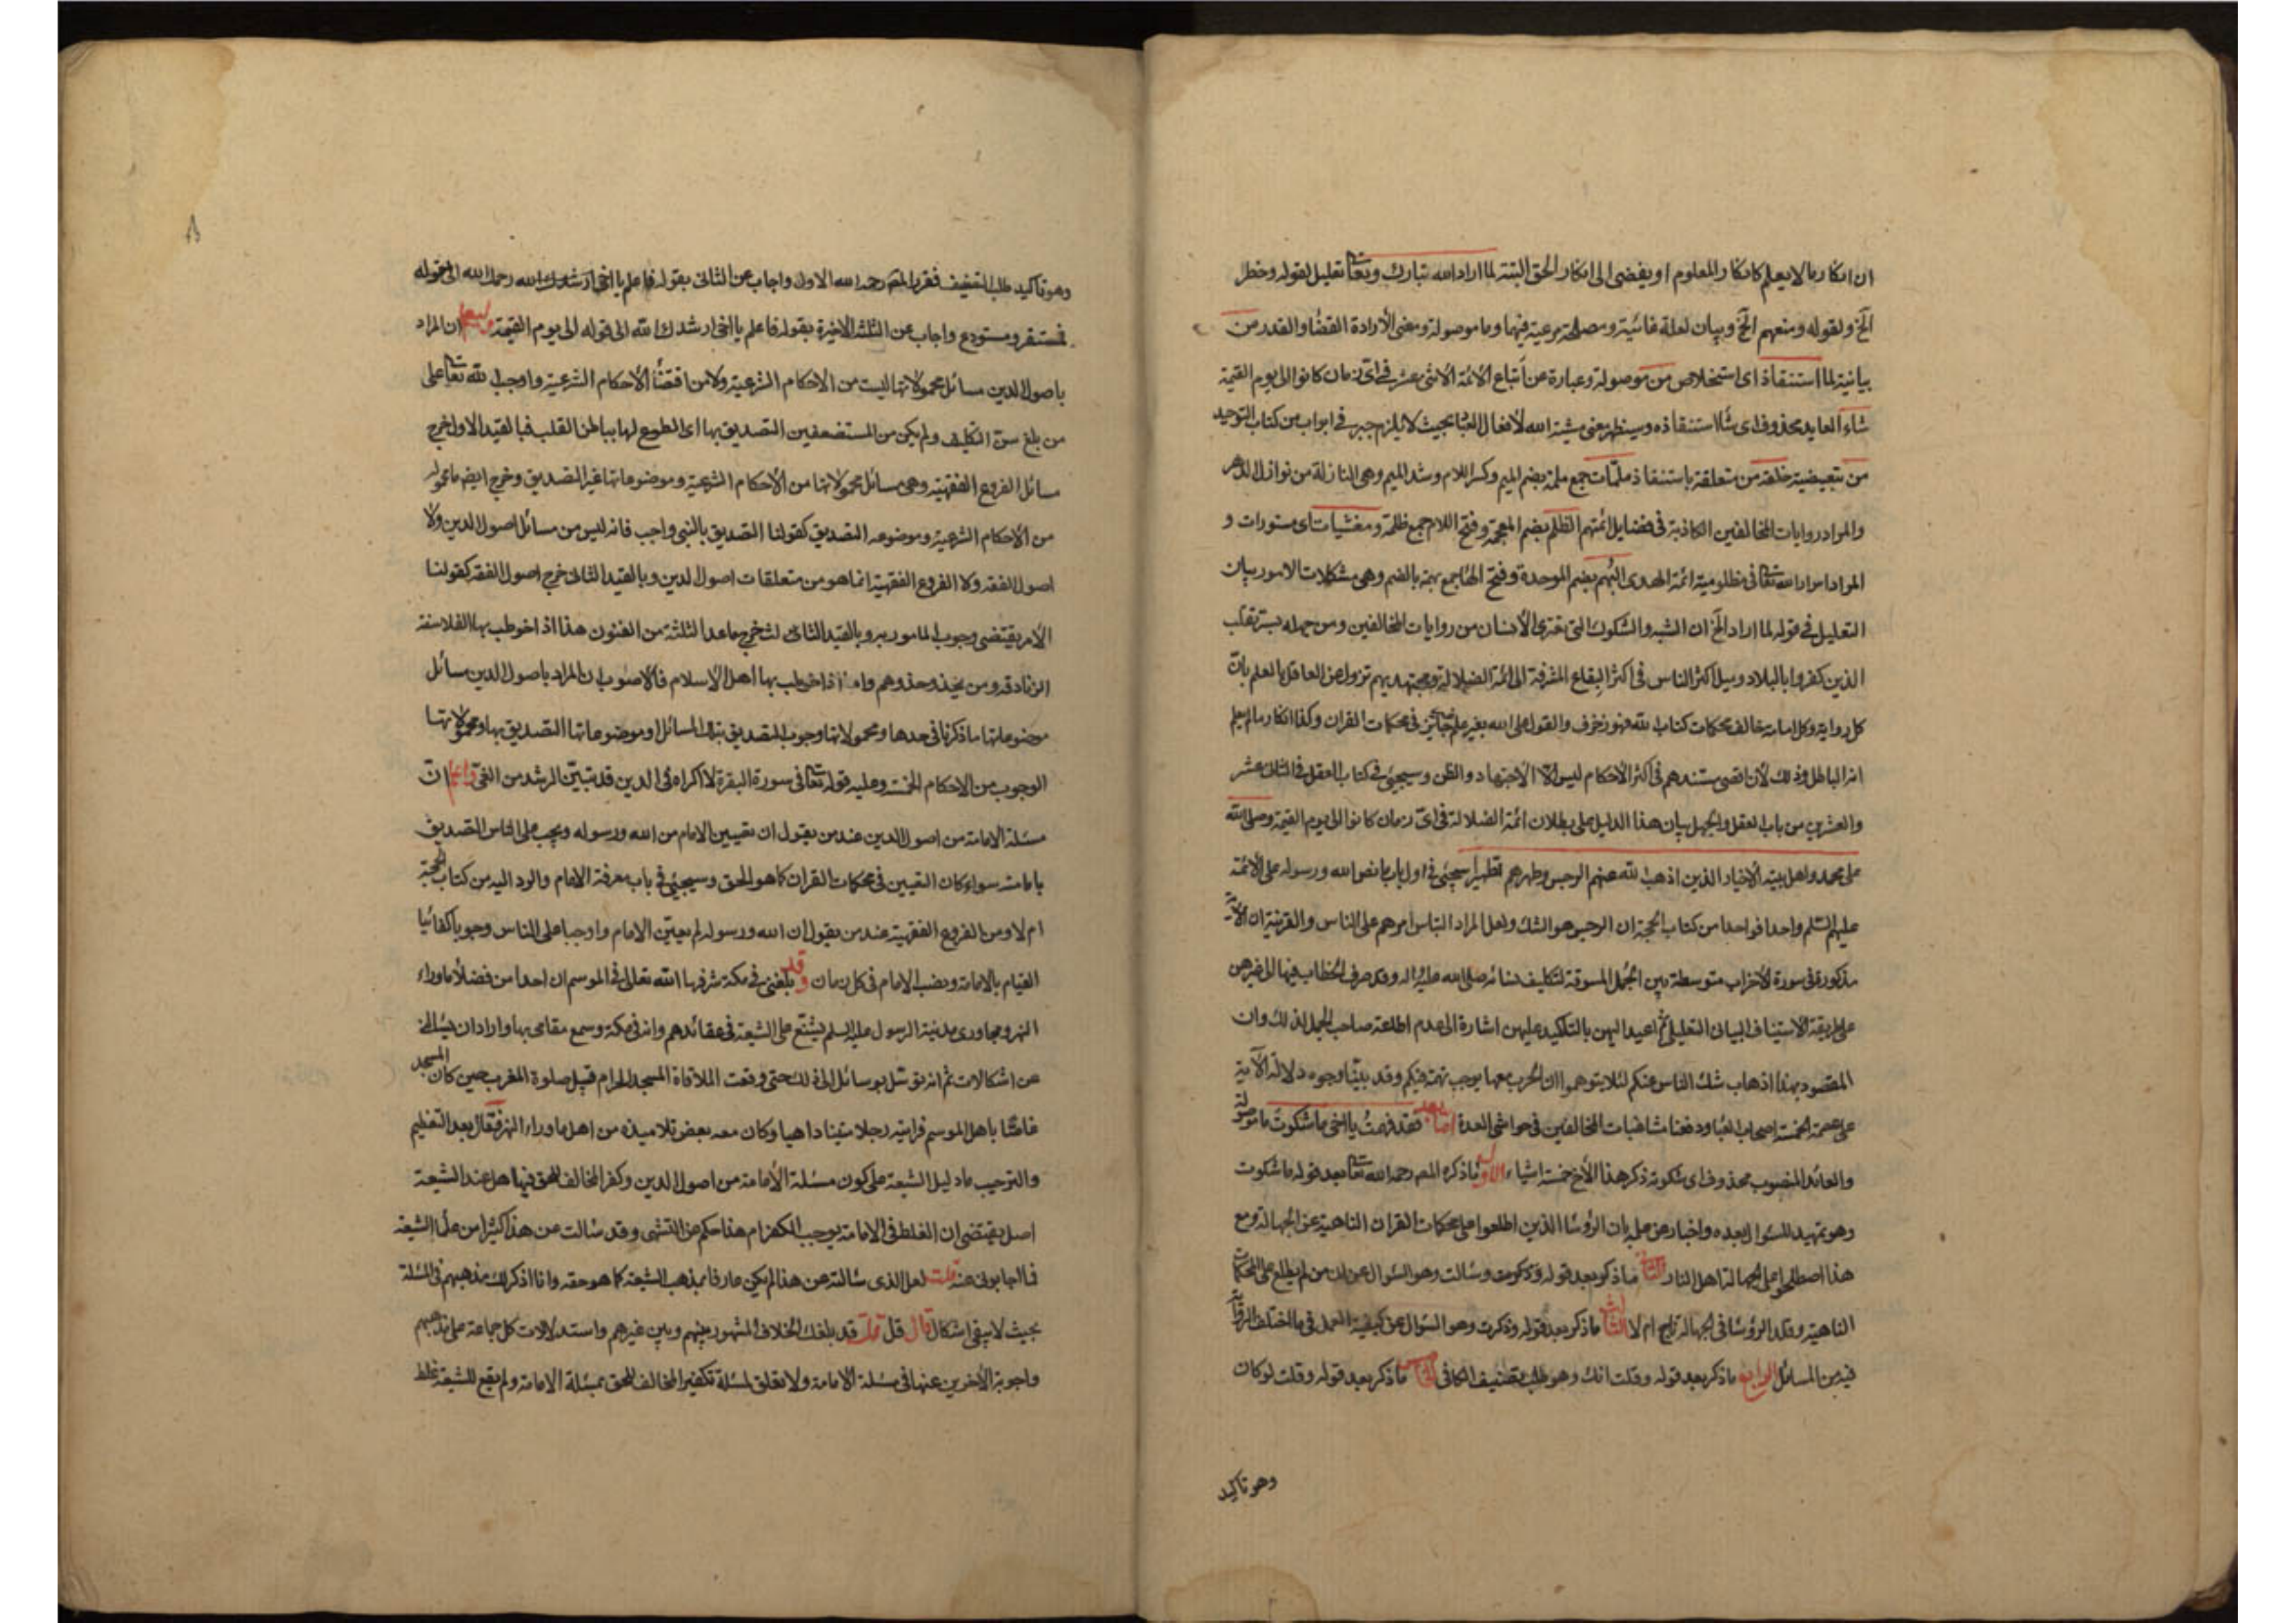 ان انكار ما لا يعلم كانكار المعلوم او يفضى الى انكار الحق البتة لما اراد الله تبارك وتعا تعليل لقوله وحظر
الخ ولقوله ومنعهم الخ وبيان لعلة غائية ومصلحة مرعية فيهما وما موصولة ومعنى الارادة القضا والقدر من
بيانية لما استنقاذ اى استخلاص من موصولة وعبارة عن اتباع الائمة الاثنى عشر فى اى زمان كانوا الى يوم القيمة
شاء العايد محذوف اى شا استنقاذه وسيظهر معنى مشية الله لافعال العباد بحيث لا يلزم جبر فى ابواب من كتاب التوحيد
من تبعيضية خلقه من متعلقة باستنقاذ ملمات جمع ملمة بضم الميم وكسر اللام وشد الميم وهى النازلة من نوازل الدهر
والمراد روايات المخالفين الكاذبة فى فضايل ائمتهم الظلم بضم المعجمة وفتح اللام جمع ظلمة ومغشيات اى مستورات و
المراد اسرار الله تعا فى مظلومية ائمة الهدى البهم بضم الموحدة وفتح الها جمع بهمة بالضم وهى مشكلات الامور بيان
التعليل فى قوله لما اراد الخ ان الشبه والشكوك التى تعترى الانسان من روايات المخالفين ومن جملة تقلب
الذين كفروا بالبلاد وميل اكثر الناس فى اكثر البقاع المشرفة الى ائمة الضلالة ومجتهديهم تزول عن العاقل بالعلم بان
كل رواية وكل امامة خالف محكمات كتاب الله فهو زخرف والقول على الله بغير علم جايز فى محكمات القران وكذا انكار ما لم يعلم
انه الباطل وذلك لان اقصى مستندهم فى اكثر الاحكام ليس الا الاجتهاد والظن وسيجيئ فى كتاب العقل فى الثانى عشر
والعشرين من باب العقل والجهل بيان هذا الدليل على بطلان ائمة الضلالة فى اى زمان كانوا الى يوم القيمة وصلى الله
على محمد واهل بيته الاخيار الذين اذهب الله عنهم الرجس وطهرهم تطهيرا سيجيئ فى اول باب ما نص الله ورسوله على الائمة
عليهم السلم واحدا فواحدا من كتاب الحجة ان الرجس هو الشك ولعل المراد التباس امرهم على الناس والقرينة ان الآية
مذكورة فى سورة الاحزاب متوسطة بين الجمل المسوقة لتكليف نسائه صلى الله عليه واله وقد صرف الخطاب فيها الى غيرهن
على طريقة الاستيناف البيانى التعليلى ثم اعيد اليهن بالتاكيد عليهن اشارة الى عدم اطاعة صاحب الجمل لذلك وان
المقصود بهذا اذهاب شك الناس عنكم لئلا يتوهموا ان الحرب معها يوجب تهمة فيكم وقد بينا وجوه دلالة الآية
على عصمة الخمسة اصحاب العبا ودفعنا مشاغبات المخالفين فى حواشى العدة اما بعد فقد فهمت يا اخى ما شكوت ما موصولة
والعائد المنصوب محذوف اى شكوته ذكر هذا الاخ خمسة اشياء الاول ما ذكره المص رحمه الله تعا بعد قوله ما شكوت
وهو تمهيد للسؤال بعده واخبار عن علم بان الرؤسا الذين اطلعوا على محكمات القران الناهية عن الجهالة ومع
هذا اصطلحوا على الجهالة اهل النار الثانى ما ذكر بعد قوله وذكرت وسالت وهو السؤال عن ان من لم يطلع على المحكمات
الناهية وقلد الرؤسا فى الجهالة ناج ام لا الثالث ما ذكر بعد قوله وذكرت وهو السؤال عن كيفية العمل فى ما اختلف الرواية
فيه من المسائل الرابع ما ذكر بعد قوله وقلت انك وهو طلب تصنيف الكافى الخامس ما ذكر بعد قوله وقلت لو كان
وهو تاكيد
وهو تاكيد طلب التصنيف فقرر المص رحمه الله الاول واجاب عن الثانى بقوله فاعلم يا اخى ارشدك الله رحمك الله الى قوله
فمستقر ومستودع واجاب عن الثلثة الاخيرة بقوله فاعلم يا اخى ارشدك الله الى قوله الى يوم القيمة وليعلم ان المراد
باصول الدين مسائل محمولاتها ليست من الاحكام الشرعية ولا من اقتضا الاحكام الشرعية واوجب الله تعا على
من بلغ سن التكليف ولم يكن من المستضعفين التصديق بها اى الطوع لها بباطن القلب فبالقيد الاول خرج
مسائل الفروع الفقهية وهى مسائل محمولاتها من الاحكام الشرعية وموضوعاتها غير التصديق وخرج ايضا ما محموله
من الاحكام الشرعية وموضوعه التصديق كقولنا التصديق بالنبى واجب فانه ليس من مسائل اصول الدين ولا
اصول الفقه ولا الفروع الفقهية انما هو من متعلقات اصول الدين وبالقيد الثانى خرج اصول الفقه كقولنا
الامر يقتضى وجوب المامور به وبالقيد الثالث خرج ماعدا الثلثة من الفنون هذا اذا خوطب بها الفلاسفة
الزنادقة ومن يحذو حذوهم واما اذا خوطب بها اهل الاسلام فالاصوب ان المراد باصول الدين مسائل
موضوعاتها ما ذكرنا فى حدها ومحمولاتها وجوب التصديق بتلك المسائل او موضوعاتها التصديق بها ومحمولاتها
الوجوب من الاحكام الخمسة وعليه قوله تعا فى سورة البقرة لا اكراه فى الدين قد تبين الرشد من الغى واعلم ان
مسئلة الامامة من اصول الدين عند من يقول ان تعيين الامام من الله ورسوله ويجب على الناس التصديق
بامامته سواء كان التعيين فى محكمات القران كما هو الحق وسيجيئ فى باب معرفة الامام والرد اليه من كتاب الحجة
ام لا ومن الفروع الفقهية عند من يقول ان الله ورسوله لم يعين الامام واوجبا على الناس وجوبا كفائيا
القيام بالامامة ونصب الامام فى كل زمان وقد بلغنى فى مكة شرفها الله تعالى فى الموسم ان احدا من فضلا ماوراء
النهر ومجاورى مدينة الرسول عليه السلم يشنع على الشيعة فى عقائدهم وانه فى مكة وسمع مقامى بها واراد ان يسالنى
عن اشكالات ثم انه توسل بوسائل الى ذلك حتى وقعت الملاقاة المسجد الحرام قبيل صلوة المغرب حين كان المسجد
غاصا باهل الموسم فرايته رجلا متينا داهيا وكان معه بعض تلاميذه من اهل ماوراء النهر فقال بعد التعظيم
والترحيب ما دليل الشيعة على كون مسئلة الامامة من اصول الدين وكفر المخالف للحق فيها هل عند الشيعة
اصل يقتضى ان الغلط فى الامامة يوجب الكفر ام هذا حكم عن التشهى وقد سالت عن هذا كثيرا من علما الشيعة
فما اجابونى عنه قلت لعل الذى سالته عن هذا لم يكن عارفا بمذهب الشيعة كما هو حقه وانا اذكر لك مذهبهم فى المسئلة
بحيث لا يبقى اشكال قال قل قلت قد بلغك الخلاف المشهور بينهم وبين غيرهم واستدلالات كل جماعة على مذهبهم
واجوبة الاخرين عنها فى مسئلة الامامة ولا تعلق لمسئلة تكفير المخالف للحق بمسئلة الامامة ولم يقع للشيعة غلط